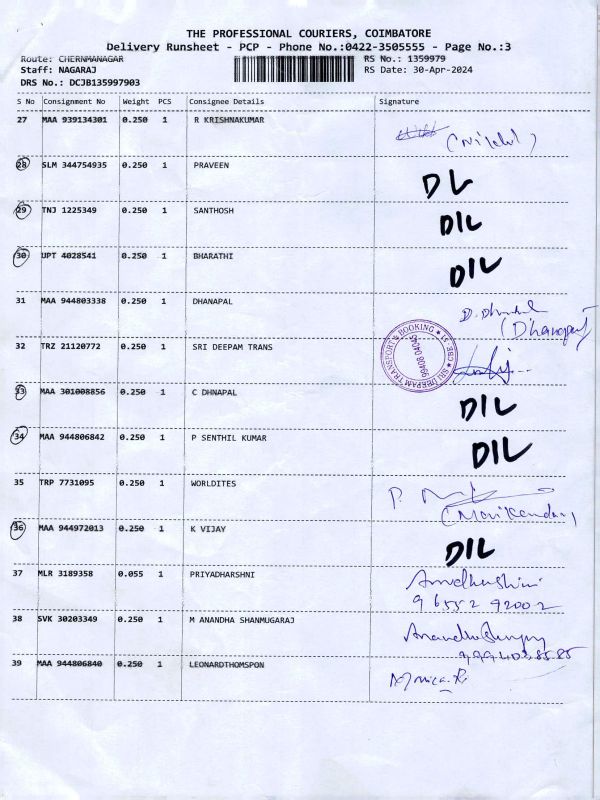 THE PROFESSIONAL COURIERS, COIMBATORE
Delivery Runsheet - PCP - Phone No.:0422-3505555 - Page No.:3
Route: CHERNMANAGAR RS No.: 1359979
Staff: NAGARAJ RS Date: 30-Apr-2024
DRS No.: DCJB135997903
S No Consignment No Weight PCS Consignee Details Signature
27 MAA 939134301 0.250 1 R KRISHNAKUMAR
28 SLM 344754935 0.250 1 PRAVEEN DL
29 TNJ 1225349 0.250 1 SANTHOSH DIL
30 UPT 4028541 0.250 1 BHARATHI DIL
31 MAA 944803338 0.250 1 DHANAPAL
(Dhanapal)
32 TRZ 21120772 0.250 1 SRI DEEPAM TRANS
SRI DEEPAM TRANSPORT & BOOKING CBE-51
33 MAA 301008856 0.250 1 C DHNAPAL DIL
34 MAA 944806842 0.250 1 P SENTHIL KUMAR DIL
35 TRP 7731095 0.250 1 WORLDITES
(Manikandan)
36 MAA 944972013 0.250 1 K VIJAY DIL
37 MLR 3189358 0.055 1 PRIYADHARSHNI
96552 92002
38 SVK 30203349 0.250 1 M ANANDHA SHANMUGARAJ
39 MAA 944806840 0.250 1 LEONARDTHOMSPON